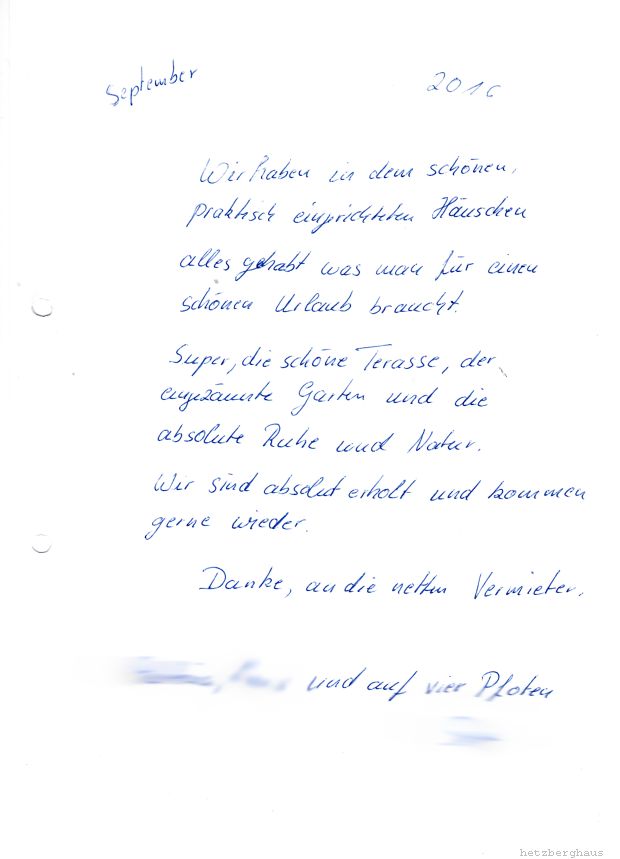 September 2016
Wir haben in dem schönen,
praktisch eingerichteten Häuschen
alles gehabt was man für einen
schönen Urlaub braucht.
Super, die schöne Terasse, der
eingezäunte Garten und die
absolute Ruhe und Natur.
Wir sind absolut erholt und kommen
gerne wieder.
Danke, an die netten Vermieter.
und auf vier Pfoten
hetzberghaus